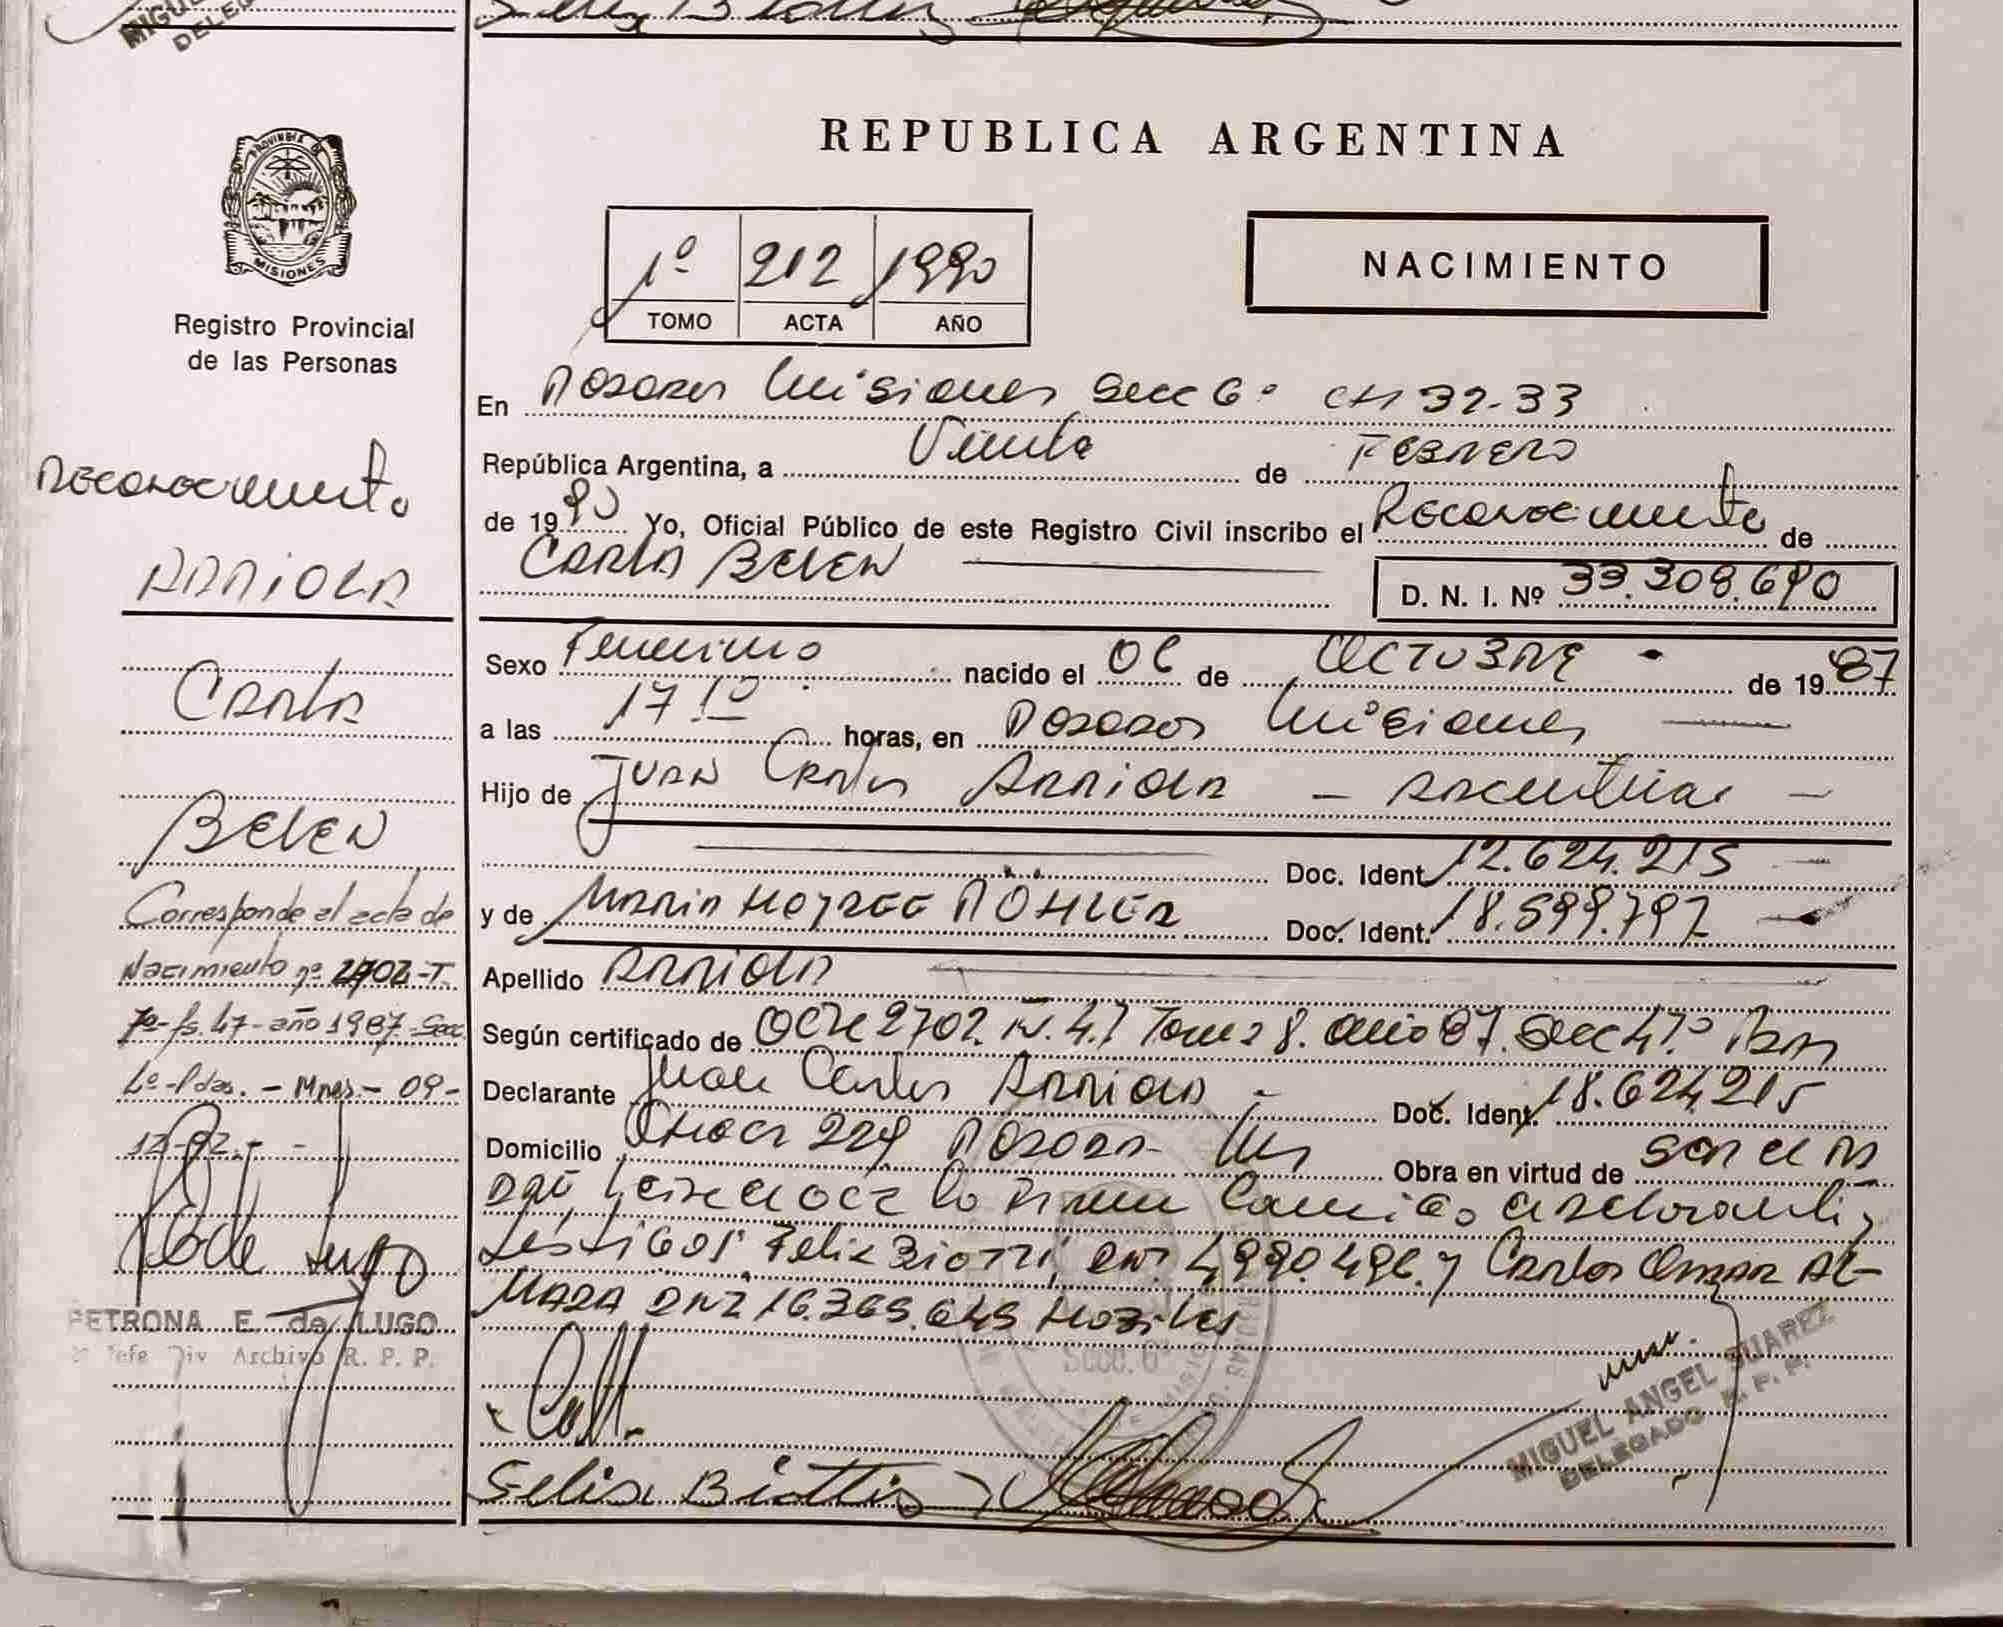 REPUBLICA ARGENTINA
PROVINCIA DE
MISIONES
Registro Provincial
de las Personas
1º 212 1990
TOMO ACTA AÑO
NACIMIENTO
En Posadas Misiones Secc 6º CH 32-33
República Argentina, a Veinte de FEBRERO
de 1990 Yo, Oficial Público de este Registro Civil inscribo el Reconocimiento de
CARLA BELEN
D. N. I. Nº 33.308.690
Sexo Femenino nacido el 06 de OCTUBRE de 1987
a las 17.10 horas, en Posadas Misiones
Hijo de JUAN Carlos ARRIOLA - Argentino -
Doc. Ident. 12.624.215
y de MARIA HAYDEE RÖHLER Doc. Ident. 18.599.797
Apellido ARRIOLA
Según certificado de Acta 2702. Fº. 47 Tomo 8. año 87. Secc 4º Pdas
Declarante Juan Carlos ARRIOLA - Doc. Ident. 18.624.215
Domicilio 229 Posadas - Mnes Obra en virtud de ser el
padre, leida el acta la firma conmigo el declarante,
testigos: Felix Biotti, DNI. 4.990.496. y Carlos Omar AL-
MADA DNI 16.365.645 Hábiles
Felix Biottis
MIGUEL ANGEL SUAREZ
DELEGADO R. P. P.
Secc. 6ª
Reconocimiento
ARRIOLA
CARLA
BELEN
Corresponde al acta de
Nacimiento nº 2702-T.
7º-fs. 47-año 1987-Secc
4º-Pdas. - Mnes - 09-
12-92. - -
PETRONA E. de LUGO
Jefe Div Archivo R. P. P.